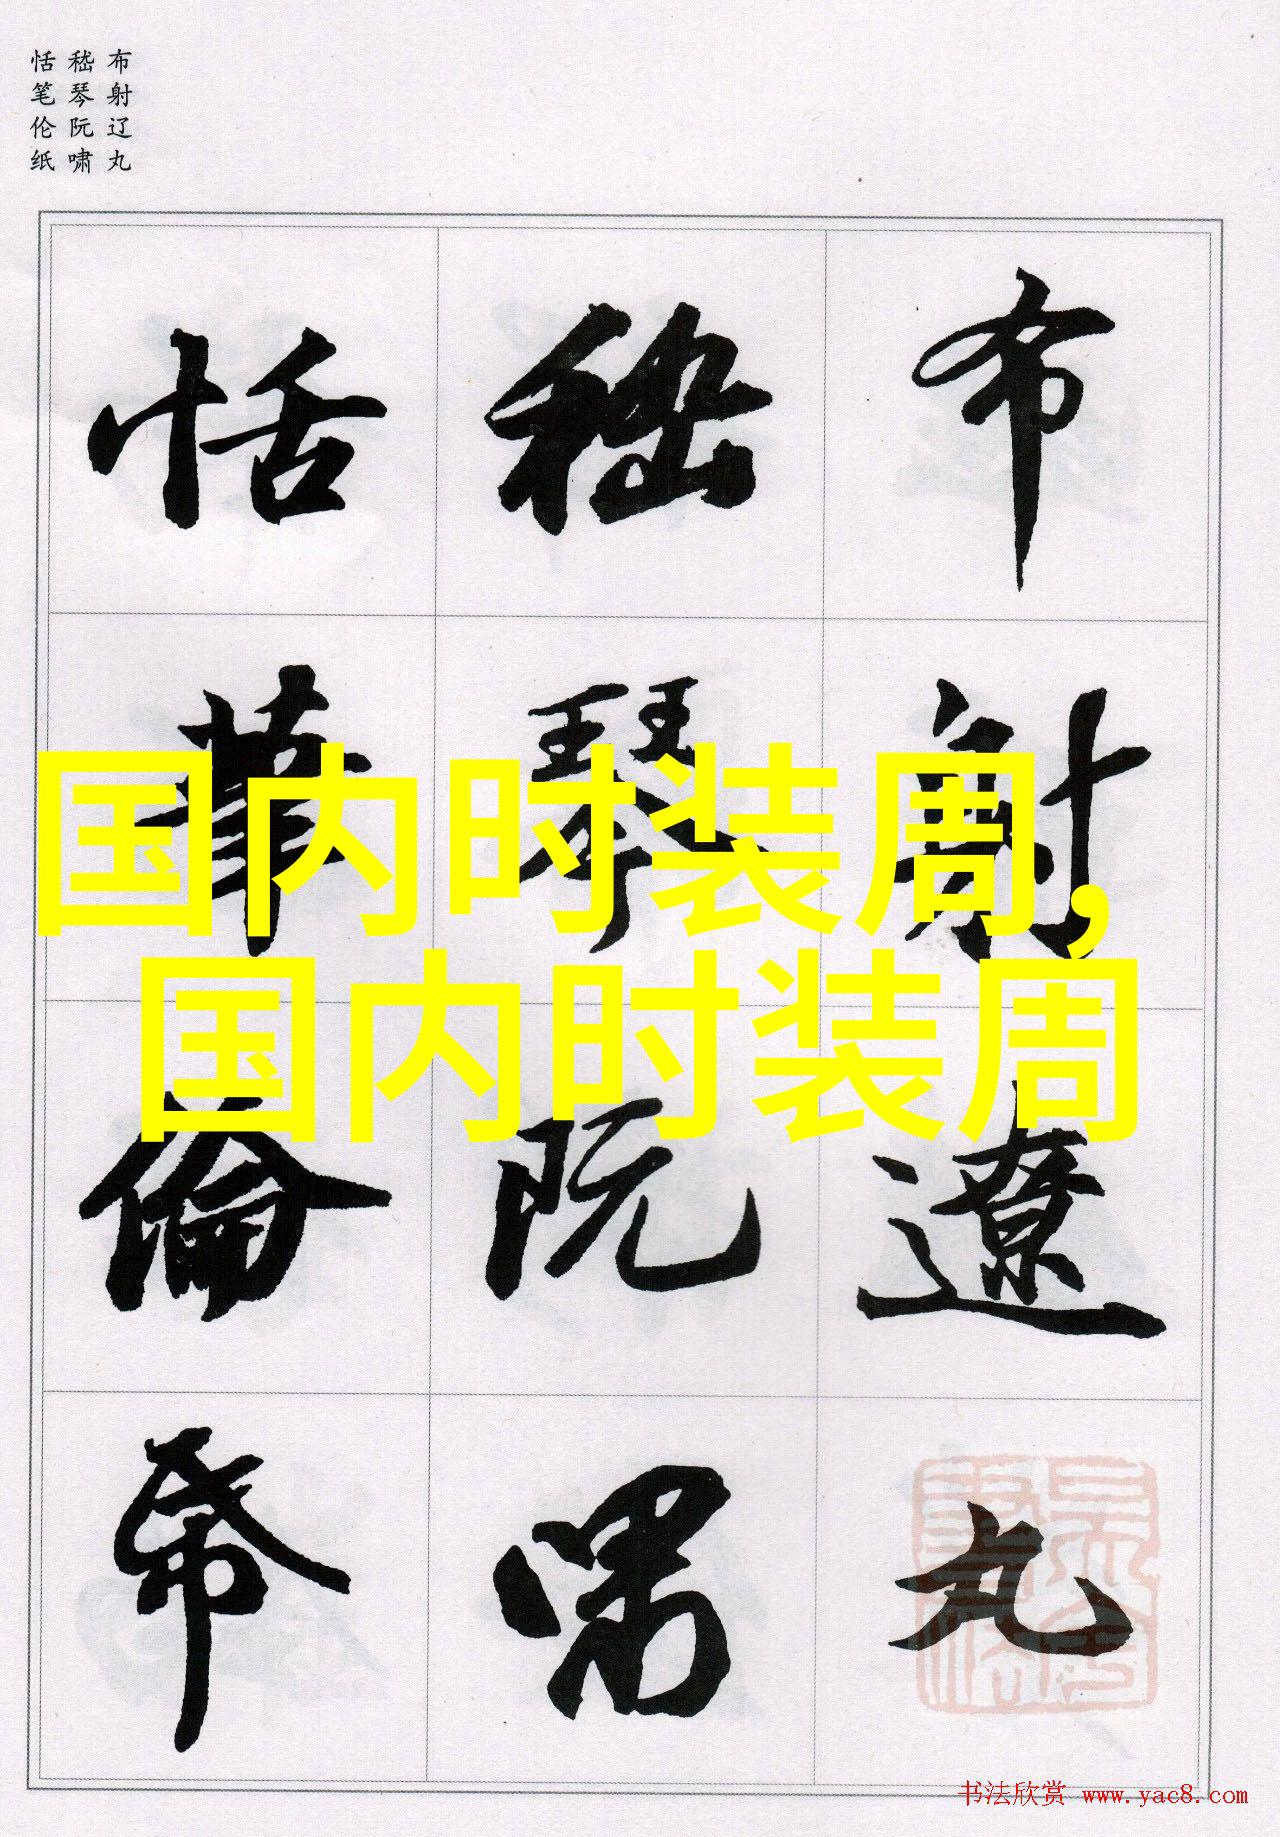 布射辽丸
嵇琴阮啸
恬笔伦纸
布射遼丸
嵇琴阮啸
恬筆倫帋
国内时装周,
国内时装周
书法欣赏 www.yac8.com